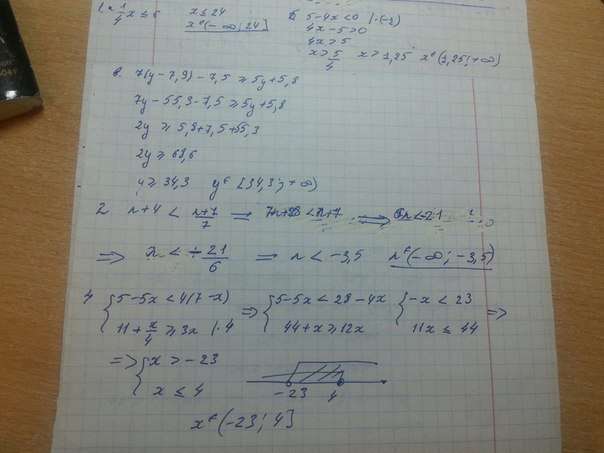 1. а 1/4 x ≤ 6   x ≤ 24   x ∈ (-∞; 24]
Б 5-4x<0 |·(-1)
4x-5>0
4x>5
x > 5/4   x > 1,25   x ∈ (1,25; +∞)
в. 7(y-7,9)-7,5 ≥ 5y+5,8
7y-55,3-7,5 ≥ 5y+5,8
2y ≥ 5,8+7,5+55,3
2y ≥ 68,6
y ≥ 34,3   y ∈ [34,3; +∞)
2   n+4 < (n+7)/7 ⇒ 7n+28 < n+7 ⇒ 6n < -21
⇒ n < -21/6 ⇒ n < -3,5   n ∈ (-∞; -3,5)
4 { 5-5x < 4(7-x) ⇒ { 5-5x < 28-4x { -x < 23
11 + x/4 ≥ 3x |·4   44+x ≥ 12x   11x ≤ 44 ⇒
⇒ { x > -23
x ≤ 4
-23   4
x ∈ (-23; 4]